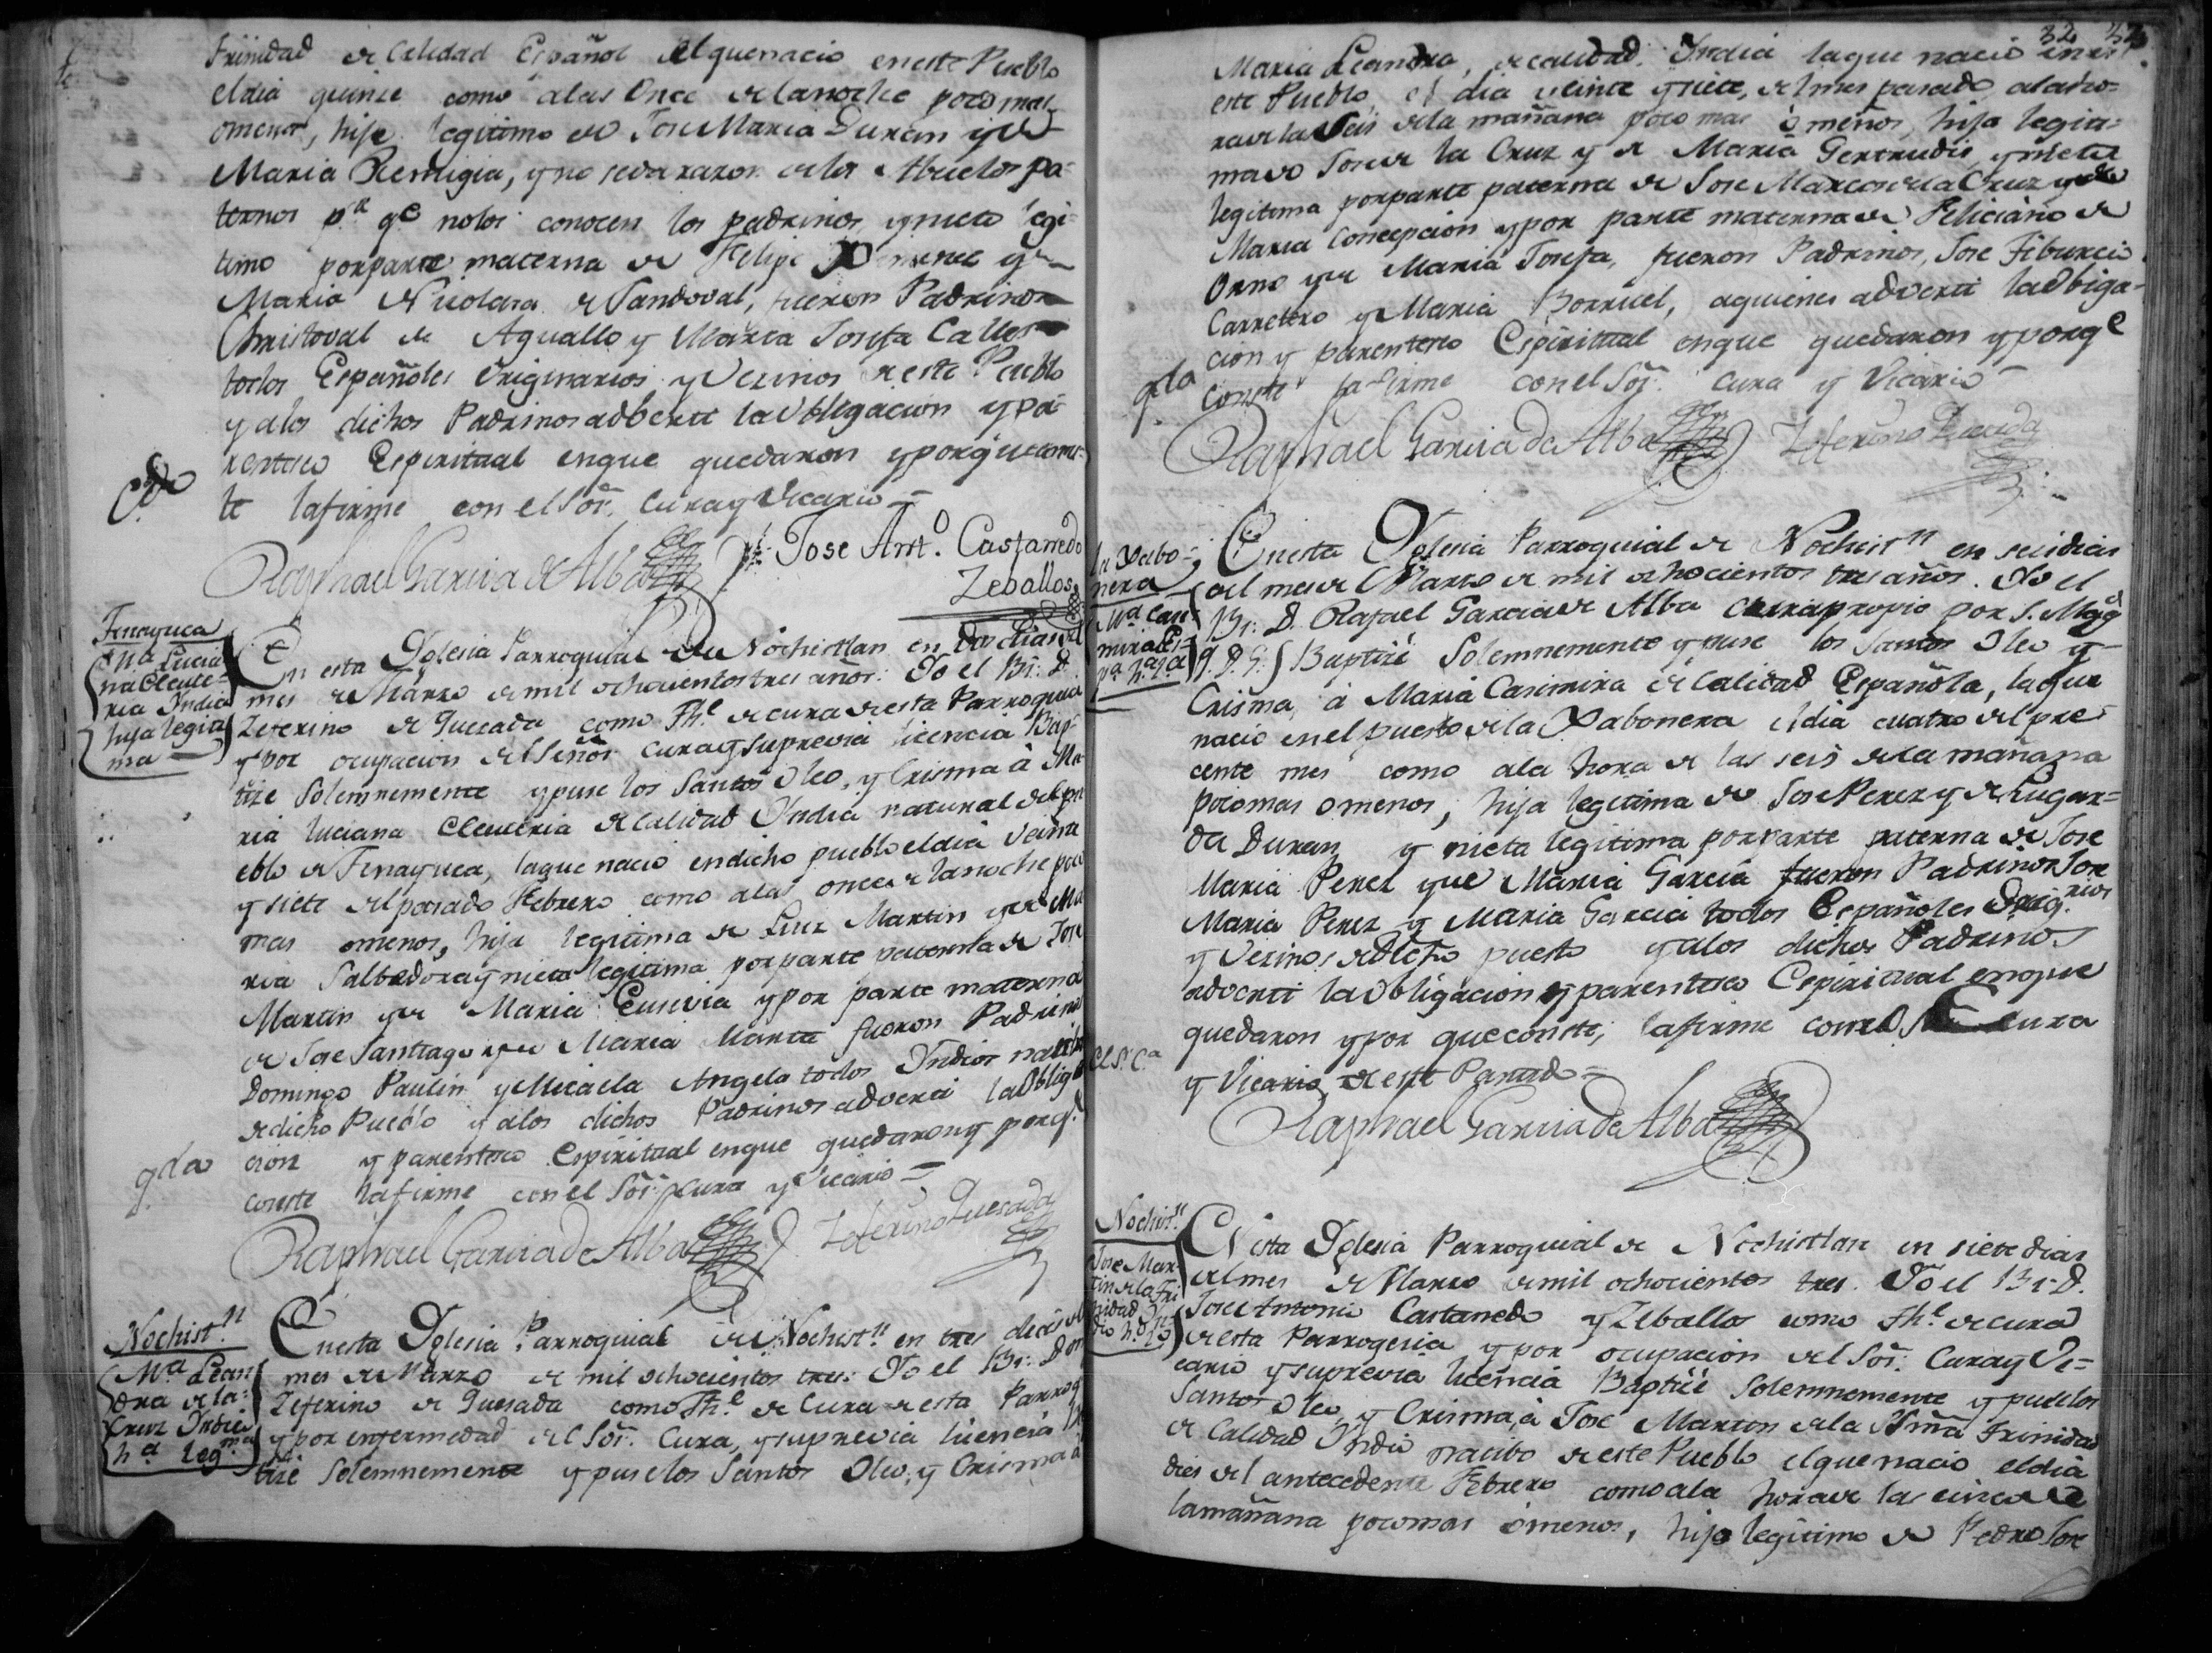 Trinidad de Calidad Español el que nacio en este Pueblo
el dia quinse como alas Once de la noche poco mas
omenos, hijo legitimo de Jose Maria Duran y de
Maria Remigia, y no se declararon alos Abuelos pa-
ternos pr. qe nolos conocen los padrinos, y nieto legi-
timo por parte materna de Felipe Ximenez y de
Maria Nicolasa de Sandoval, fueron Padrinos
Christoval de Aguallo y Maria Josefa Calles
todos Españoles Originarios y Vezinos de este Pueblo
y alos dichos Padrinos adberti la Obligacion y pa-
rentesco Espiritual en que quedaron y porque cons-
te lafirme con el Sor. Cura y Vicario =
Raphael Garcia de Alba Jose Ant.o Castanedo
Zeballos
Tenayuca
Ma Lucia
na Cleme-
ria India
hija legiti
ma
En esta Yglesia Parroquial de Nochistlan en dos dias del
mes de Marzo de mil ochocientos tres años: Yo el Br. D.
Zeferino de Quesada como The. de cura de esta Parroquia
y por ocupacion del Señor Cura y su previa licencia Bap-
tize Solemnemente y puse los Santos Oleo, y Crisma à Ma-
ria Luciana Clemeria de Calidad Yndia natural del pu
eblo de Tenayuca, laque nacio en dicho pueblo el dia veinte
y siete del pasado Febrero como alas once de la noche poco
mas omenos, hija legitima de Luiz Martin y de Ma
ria Salbadora y nieta legitima por parte paterna de Jose
Martin y de Maria Eusevia y por parte materna
de Jose Santiago y de Maria Marta fueron Padrinos
Domingo Paulin y Micaela Angela todos Yndios
de dicho Pueblo y alos dichos Padrinos adverti la Obliga
cion y parentesco Espiritual en que quedaron y porq.e
conste lafirme con el Sor. Cura y Vicario =
gda
Raphael Garcia de Alba Zeferino Quesada
Nochist.n
Ma Lean
dra de la
Cruz India
ha leg.ma
En esta Yglesia Parroquial de Nochist.n en tres dias del
mes de Marzo de mil ochocientos tres: Yo el Br: Don
Zeferino de Quesada como The. de Cura de esta Parroq
y por enfermedad del Sor. Cura, y su previa licencia Bap
tizé Solemnemente y puse los Santos Oleo, y Crisma à
32
Maria Leandra, de calidad India laque nacio en
este Pueblo, el dia veinte y siete, del mes pasado, ala ho-
ra de las Seis de la mañana poco mas ò menos, hija legiti-
ma de Jose de la Cruz y de Maria Gertrudis, y nieta
legitima por parte paterna de Jose Marcos de la Cruz y de
Maria Concepcion y por parte materna de Feliciano de
Orno y de Maria Josefa, fueron Padrinos, Jose Tiburcio
Carretero y Maria Borruel, aquienes adverti la Obliga-
cion y parentesco Espiritual en que quedaron y porqe
conste lafirme con el Sor. Cura y Vicario =
gda
Raphael Garcia de Alba Zeferino Quesada
la Xabo-
nera
Ma Casi-
mira Es-
pa ha La
En esta Yglesia Parroquial de Nochist.n en seis dias
del mes de Marzo de mil ochocientos tres años. Yo el
Br. D. Rafael Garcia de Alba Cura propio por S. Magd
q. D. G. Baptizé Solemnemente y puse los Santos Oleo y
Crisma, à Maria Casimira de Calidad Española, laque
nacio en el puesto de la Xabonera el dia cuatro del pre-
cente mes como ala hora de las seis de la mañana
poco mas omenos, hija legitima de Jose Perez y de Lugar-
da Duran y nieta legitima por parte paterna de Jose
Maria Perez y de Maria Garcia fueron Padrinos Jose
Maria Perez y Maria Garcia todos Españoles Orig.rios
y Vezinos de dicho puesto y alos dichos Padrinos
adverti la Obligacion y parentesco Espiritual en que
quedaron y por que conste, lafirme como Cura
El Sr. Ca
y Vicario de este Partido =
Raphael Garcia de Alba
Nochist.n
Jose Mar-
tin de la Tri
nidad Yn-
dio h.o Lo
En esta Yglesia Parroquial de Nochistlan en siete dias
del mes de Marzo de mil ochocientos tres. Yo el Br. D.
Jose Antonio Castanedo y Zeballos como The. de cura
de esta Parroquia y por ocupacion del Sor. Cura y Vi-
cario y su previa licencia Baptizé Solemnemente y puse los
Santos Oleo, y Crisma, à Jose Martin de la Ssma Trinidad
de Calidad Yndio natibo de este Pueblo el que nacio el dia
dies del antecedente Febrero como ala hora de las cinco de
la mañana poco mas òmenos, hijo legitimo de Pedro Jose